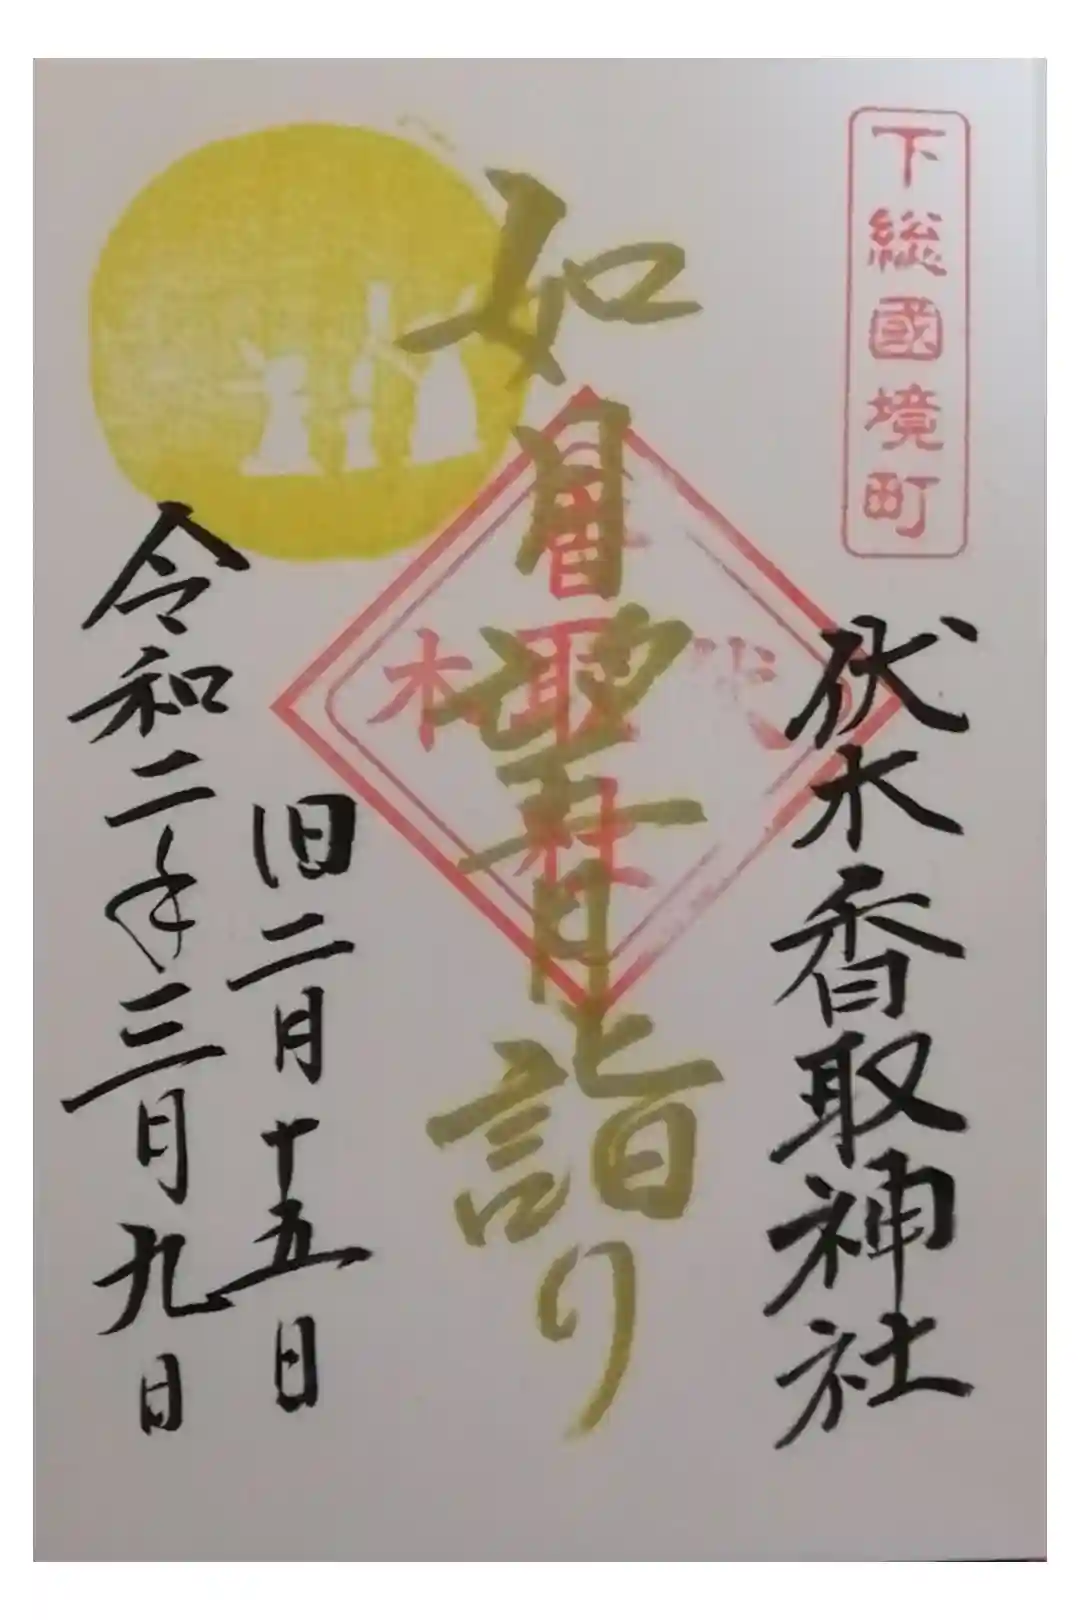 下総國境町
伏木香取神社
伏木
香取
社
如月望月詣り
旧二月十五日
令和二年三月九日